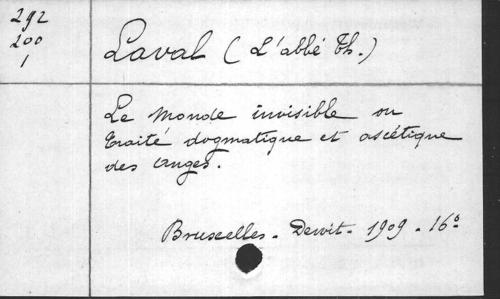 292
200
1
Laval (L'abbé Th.)
Le Monde invisible ou
traité dogmatique et ascétique
des Anges.
Bruxelles - Dewit - 1909 - 16°